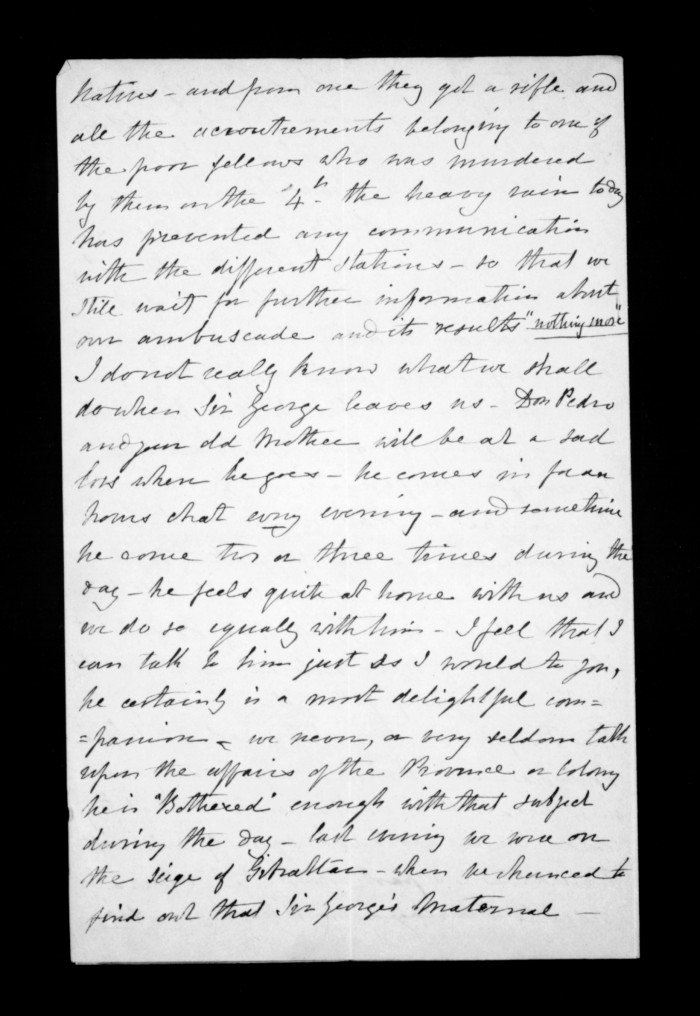 Natives - and from one they got a rifle and
all the acoutrements belonging to one of
the poor fellows who was murdered
by them on the "4th - the heavy rain today
has prevented any communication
with the different stations - so that we
still wait for further information about
our ambuscade and its results "nothing more"
I do not really know what we shall
do when Sir George leaves us - Don Pedro
and your old Mother will be at a sad
loss when he goes - he comes in for an
hours chat every evening - and sometime
he come two or three times during the
day - he feels quite at home with us and
we do so equally with him - I feel that I
can talk to him just as I would to you,
he certainly is a most delightful com=
=panion - we never, or very seldom talk
upon the affairs of the Province or Colony
he is "Bothered" enough with that subject
during the day - last evening we were on
the seige of Gibraltar - when we chanced to
find out that Sir George's Maternal -